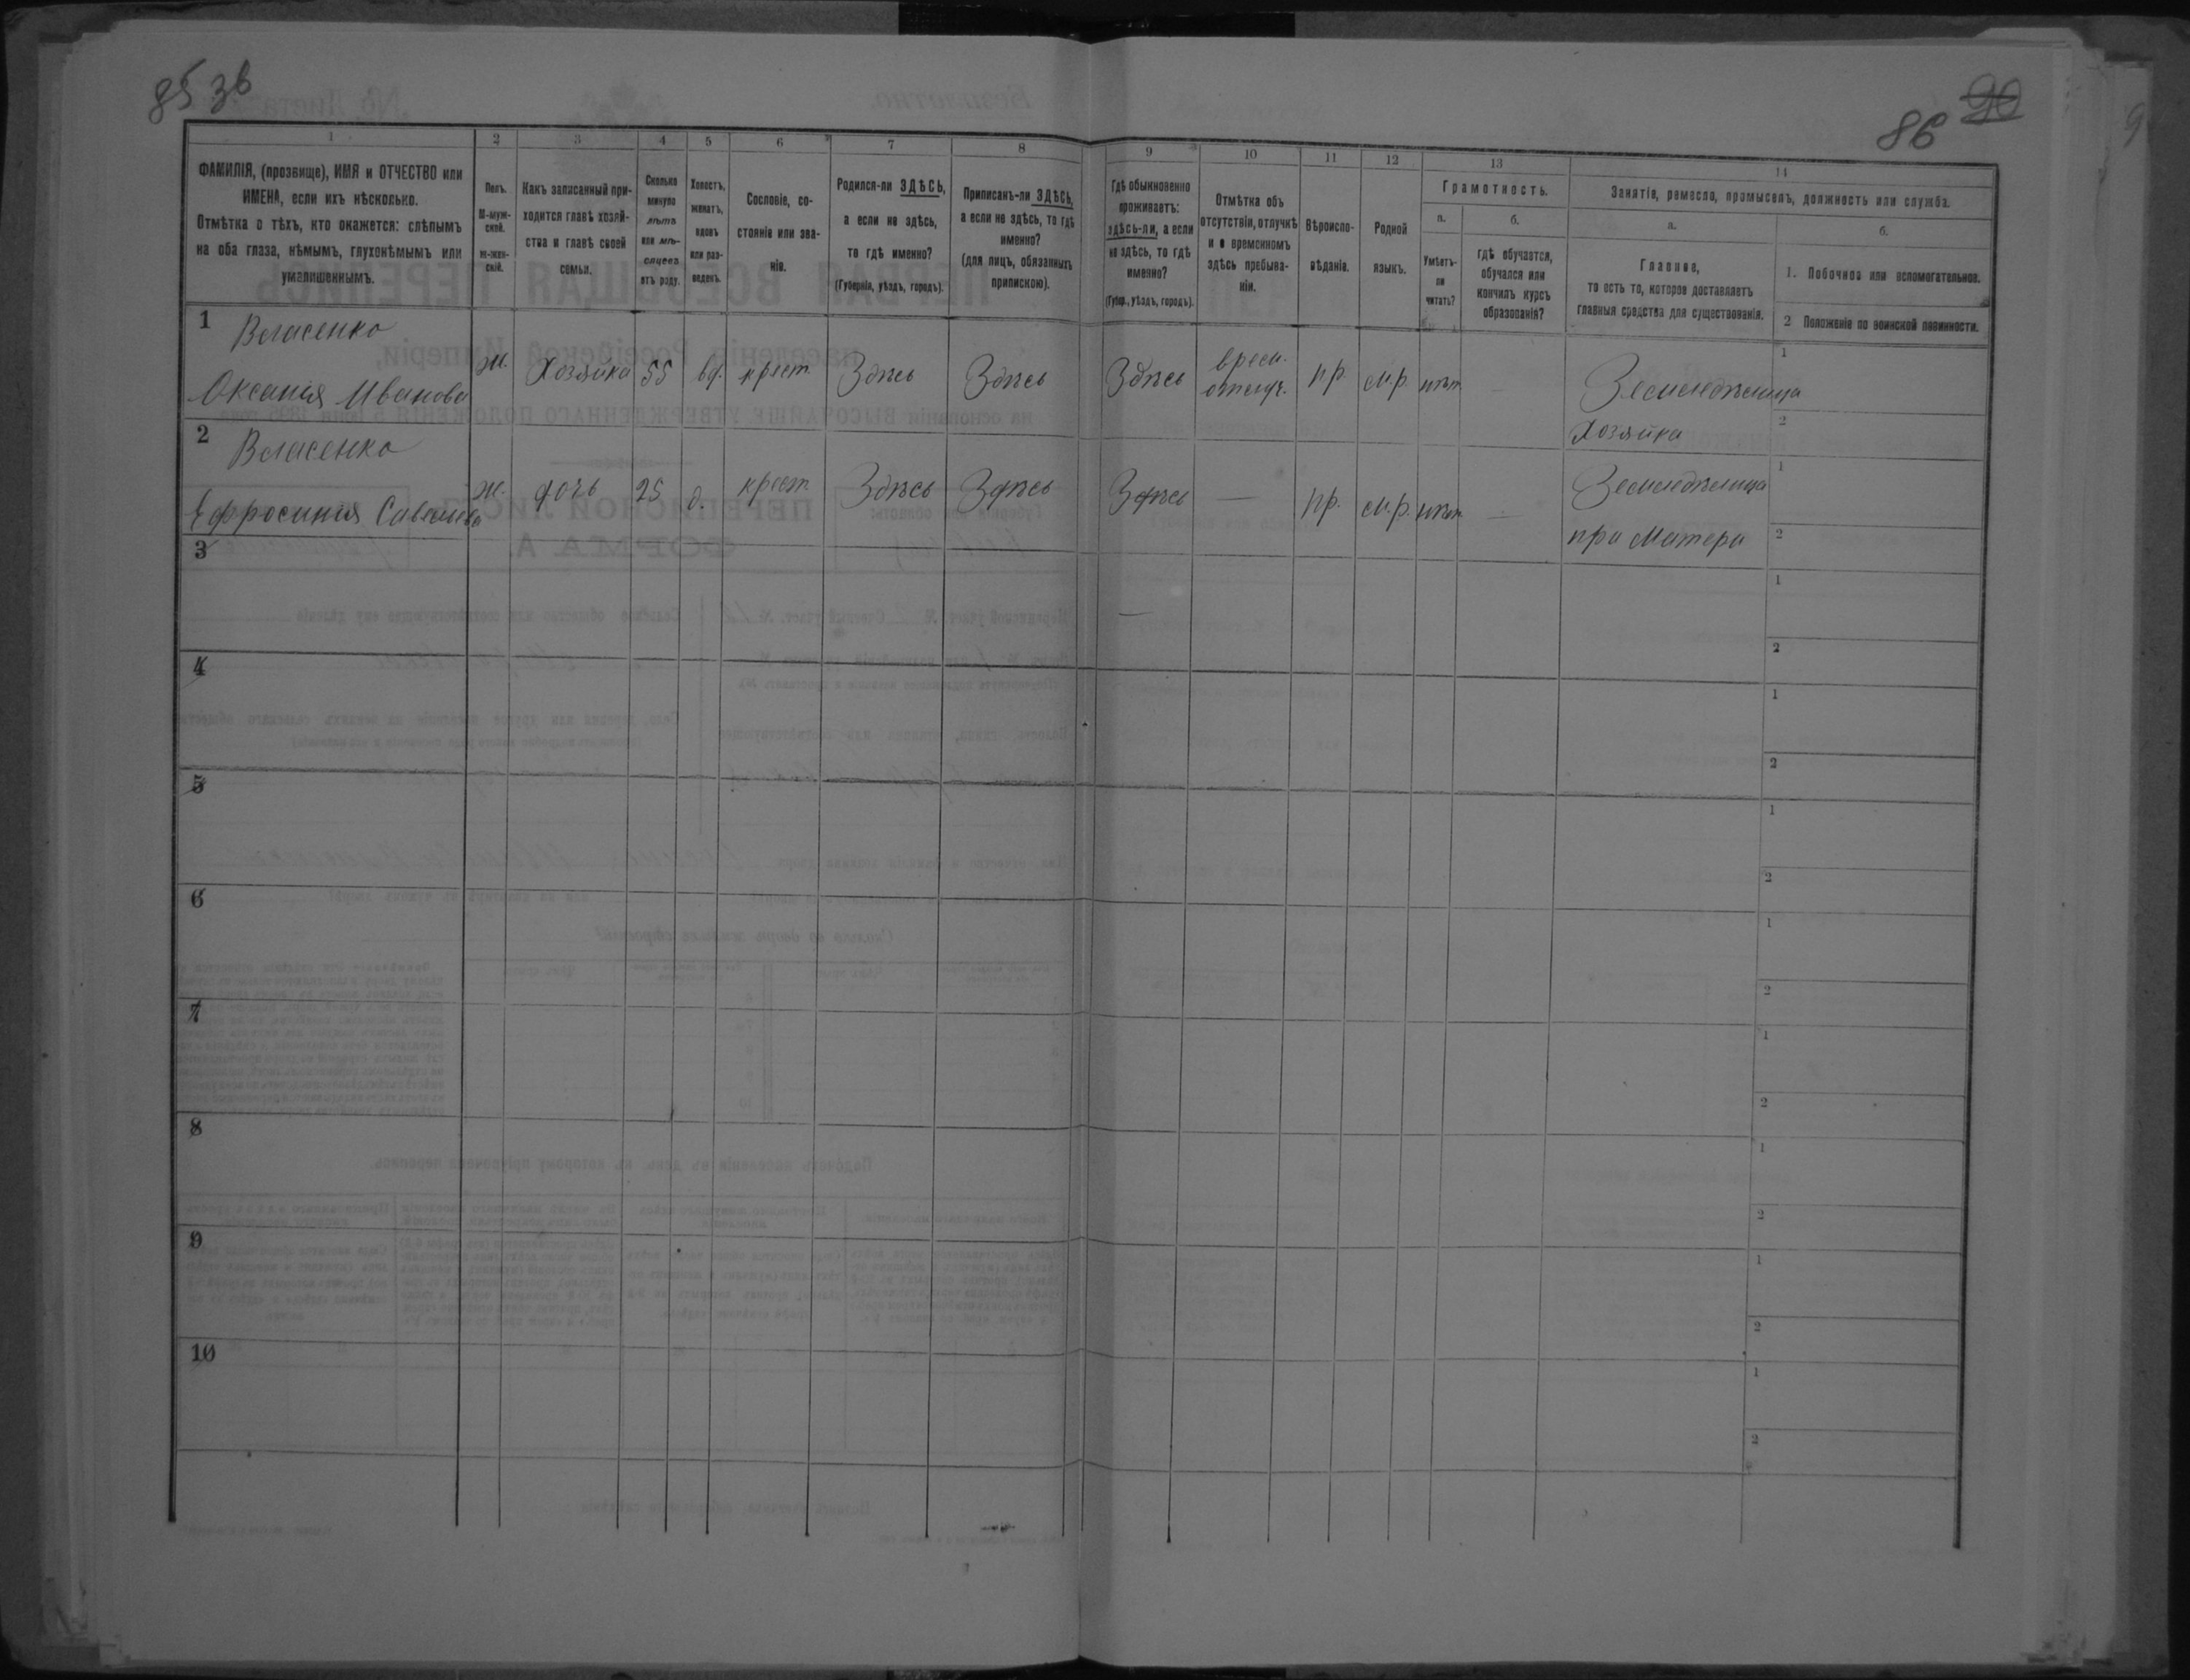 85 зв
86
90
1
2
3
4
5
6
7
8
9
10
11
12
13
14
ФАМИЛІЯ, (прозвище), ИМЯ и ОТЧЕСТВО или
ИМЕНА, если ихъ нѣсколько.
Отмѣтка о тѣхъ, кто окажется: слѣпымъ
на оба глаза, нѣмымъ, глухонѣмымъ или
умалишеннымъ.
Полъ.
М-муж-
ской.
Ж-жен-
скій.
Какъ записанный при-
ходится главѣ хозяй-
ства и главѣ своей
семьи.
Сколько
минуло
лѣтъ
или мѣ-
сяцевъ
отъ роду.
Холостъ,
женатъ,
вдовъ
или раз-
веденъ.
Сословіе, со-
стояніе или зва-
ніе.
Родился-ли ЗДѢСЬ,
а если не здѣсь,
то гдѣ именно?
(Губернія, уѣздъ, городъ).
Приписанъ-ли ЗДѢСЬ,
а если не здѣсь, то гдѣ
именно?
(для лицъ, обязанныхъ
припискою).
Гдѣ обыкновенно
проживаетъ:
здѣсь-ли, а если
не здѣсь, то гдѣ
именно?
(Губер., уѣздъ, городъ).
Отмѣтка объ
отсутствіи, отлучкѣ
и о временномъ
здѣсь пребыва-
ніи.
Вѣроиспо-
вѣданіе.
Родной
языкъ.
Грамотность.
а.
Умѣетъ-
ли
читать?
б.
гдѣ обучается,
обучался или
кончилъ курсъ
образованія?
Занятіе, ремесло, промыселъ, должность или служба.
а.
Главное,
то есть то, которое доставляетъ
главныя средства для существованія.
б.
1. Побочное или вспомогательное.
2 Положеніе по воинской повинности.
1 Власенко
Оксанія Иванова ж. Хозяйка 55 вд. крест. Здѣсь Здѣсь Здѣсь врем. отлуч. пр. м.р. нѣт — Земледѣлица
Хозяйка
2 Власенко
Ефросинія Савельева ж. дочь 25 д. крест Здѣсь Здѣсь Здѣсь — пр. м.р. нѣт — Земледѣлица
при Матери
3
4
5
6
7
8
9
10